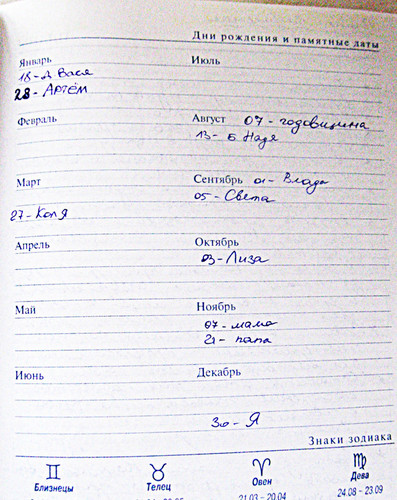 Дни рождения и памятные даты
Январь
18 - д Вася
28 - Артём
Февраль
Март
27 - Коля
Апрель
Май
Июнь
Июль
Август 07 - годовщина
13 - Б Надя
Сентябрь 01 - Влада
05 - Света
Октябрь
03 - Лиза
Ноябрь
07 - мама
21 - папа
Декабрь
30 - Я
Знаки зодиака
Близнецы Телец Овен Дева
21.03 - 20.04 24.08 - 23.09